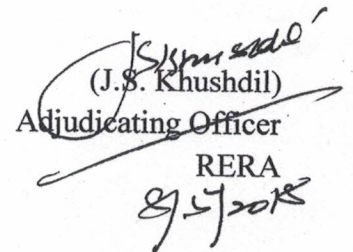 (J.S. Khushdil)
Adjudicating Officer
RERA
8/5/2018